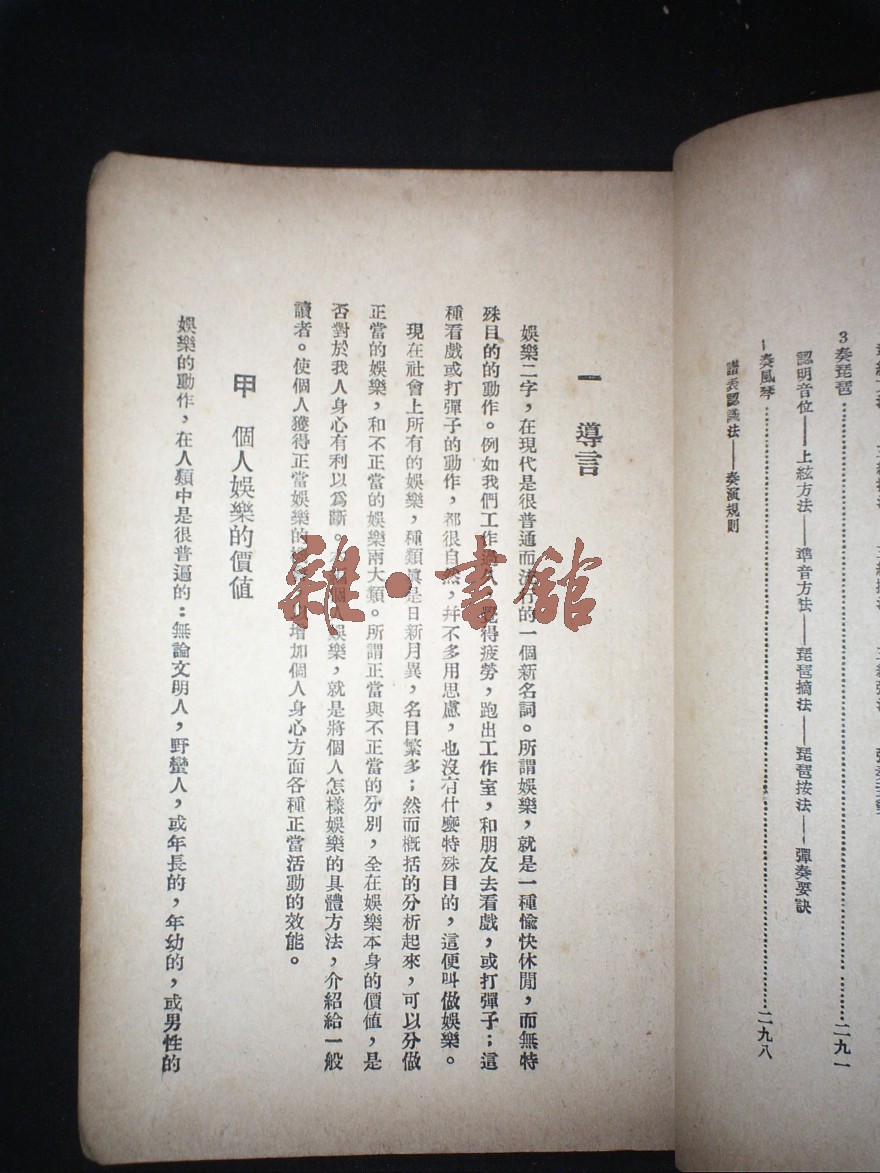 3 奏琵琶……二九一
認明音位——上絃方法——準音方法——琵琶摘法——琵琶按法——彈奏要訣
奏風琴……二九八
譜表認識法——奏演規則
一 導言
娛樂二字，在現代是很普通而流行的一個新名詞。所謂娛樂，就是一種愉快休閒，而無特
殊目的的動作。例如我們工作過久，覺得疲勞，跑出工作室，和朋友去看戲，或打彈子；這
種看戲或打彈子的動作，都很自然，幷不多用思慮，也沒有什麼特殊目的，這便叫做娛樂。
現在社會上所有的娛樂，種類眞是日新月異，名目繁多；然而概括的分析起來，可以分做
正當的娛樂，和不正當的娛樂兩大類。所謂正當與不正當的分別，全在娛樂本身的價値，是
否對於我人身心有利以爲斷。個人娛樂，就是將個人怎樣娛樂的具體方法，介紹給一般
讀者。使個人獲得正當娛樂的增加個人身心方面各種正當活動的效能。
甲 個人娛樂的價値
娛樂的動作，在人類中是很普遍的：無論文明人，野蠻人，或年長的，年幼的，或男性的
雜·書館